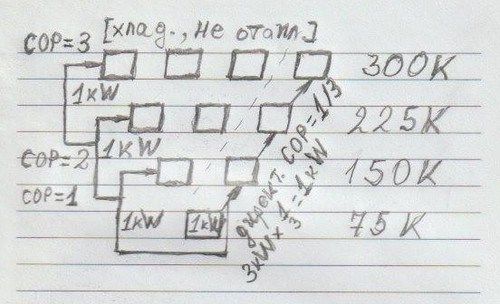 [хлад., не отапл.]
COP=3
300K
1kW
225K
1KW
COP=2
150K
COP=1
1kW
1kW
75K
директ. COP=1/3
3kW×1/3=1kW